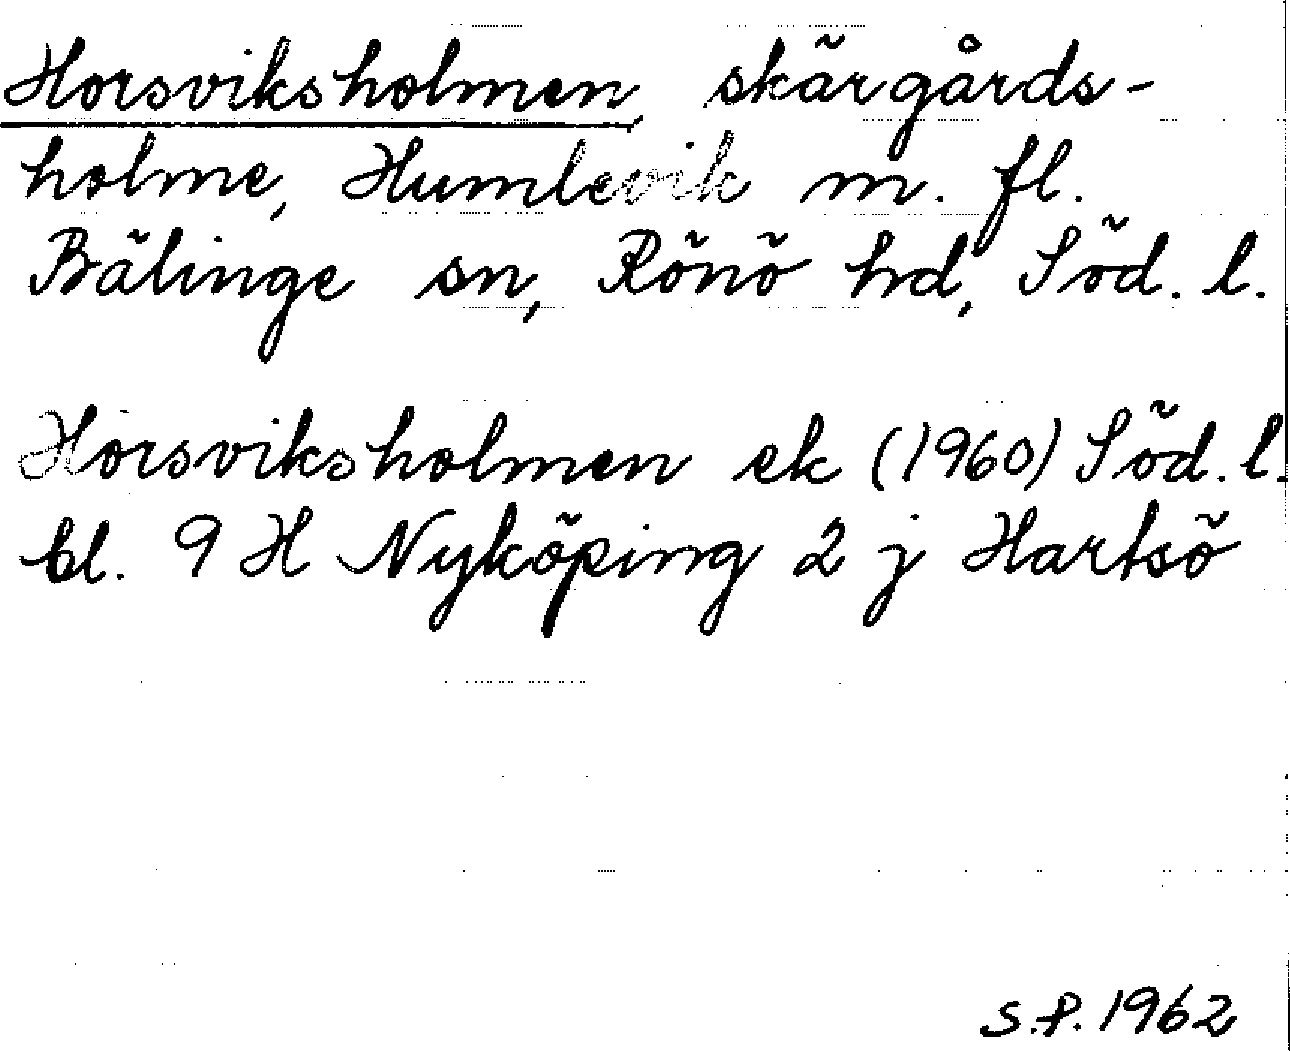 Horsviksholmen, skärgårds-
holme, Humlevik m. fl.
Bälinge sn, Rönö hd, Söd. l.
Horsviksholmen ek (1960) Söd. l.
bl. 9 H Nyköping 2 j Hartsö
S.P. 1962